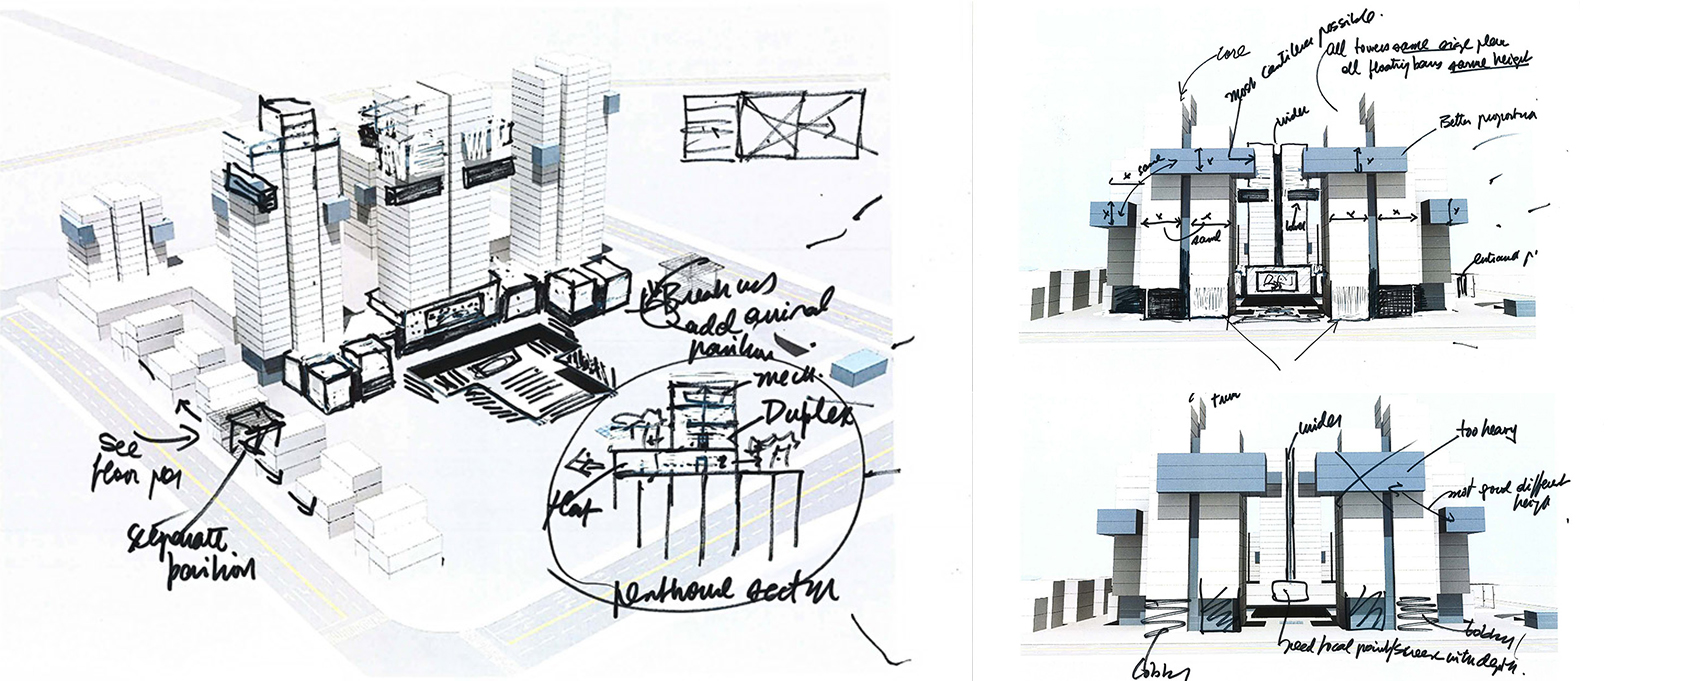 Break up
add arrival
pavilion
mech.
Duplex
flat
penthouse section
see
floor plan
seeparate
pavilion
core
most cantilever possible.
All towers same size plan
all floating bars same height
wider
Better proportion
x same
x
x
x
x
x
x
same
x
x
x
wider
too heavy
most good different
height
lobby
lobby
need focal point/screen with depth.